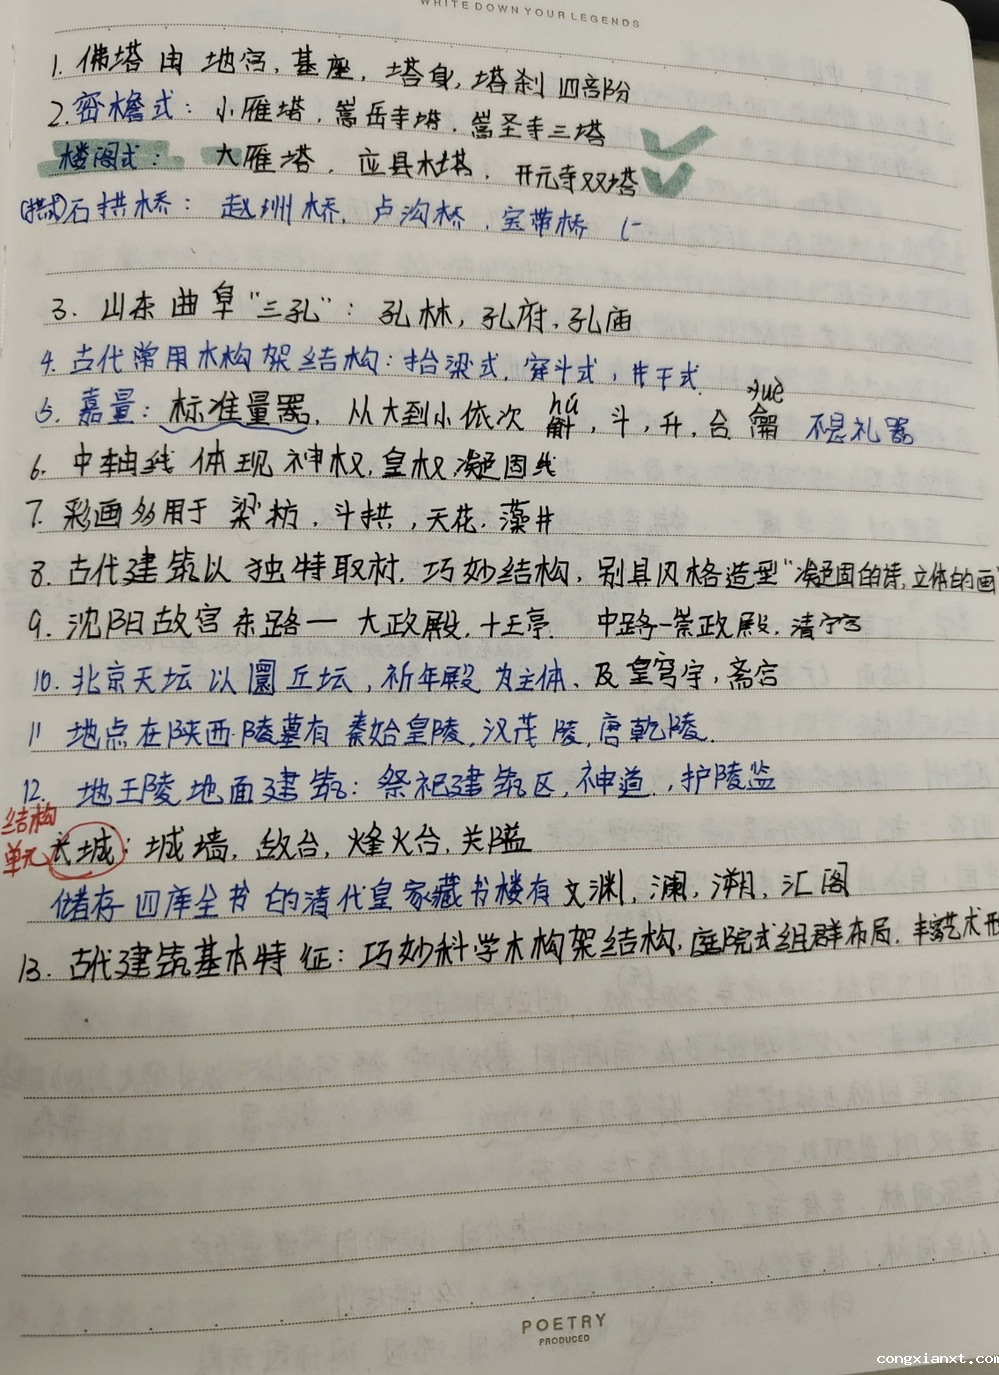 WRITE DOWN YOUR LEGENDS
1. 佛塔由地宫,基座,塔身,塔刹四部分
2.密檐式:小雁塔,嵩岳寺塔,嵩圣寺三塔
楼阁式:大雁塔,应县木塔,开元寺双塔
(拱式)石拱桥:赵州桥,卢沟桥,宝带桥
3. 山东曲阜"三孔":孔林,孔府,孔庙
4. 古代常用木构架结构:抬梁式,穿斗式,井干式
5. 嘉量:标准量器,从大到小依次 hú 斛,斗,升,合 yuè 龠 不是礼器
6. 中轴线体现神权,皇权,凝固线
7. 彩画多用于梁枋,斗拱,天花,藻井
8. 古代建筑以独特取材,巧妙结构,别具风格造型"凝固的诗,立体的画"
9. 沈阳故宫东路一大政殿,十王亭. 中路一崇政殿,清宁宫
10. 北京天坛以圜丘坛,祈年殿为主体,及皇穹宇,斋宫
11 地点在陕西陵墓有秦始皇陵,汉茂陵,唐乾陵.
12. 地王陵地面建筑:祭祀建筑区,神道,护陵监
结构单元 长城:城墙,敌台,烽火台,关隘
储存四库全书的清代皇家藏书楼有文渊,澜,溯,汇阁
13. 古代建筑基本特征:巧妙科学木构架结构,庭院式组群布局,丰富艺术形
POETRY
PRODUCED
congxianxt.com